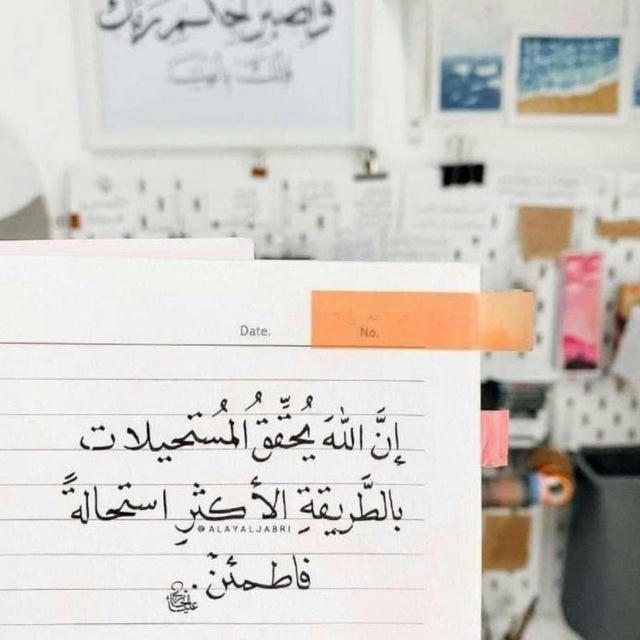 واصبر لحكم ربك
فإنك بأعيننا
Date.
No.
إنَّ اللهَ يُحقِّقُ المُستحيلات
بالطَّريقةِ الأكثرِ استحالةً
@ALAYALJABRI
فاطمئنْ.